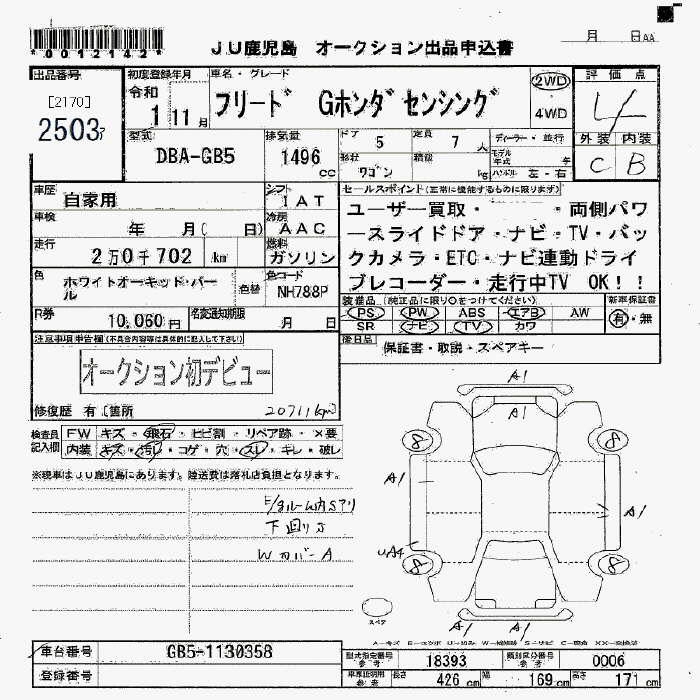 *0012142*
JU鹿児島 オークション出品申込書
月 日AA
出品番号
[2170]
2503ァ
初度登録年月
令和
1 11月
車名・グレード
フリード Gホンダセンシング
2WD
・4WD
評価点
4
外装 内装
C B
型式
DBA-GB5
排気量
1496
cc
ドア 5
定員 7 人
ディーラー・並行
形状 ワゴン
積載 kg
モデル年式 年
ハンドル 左・右
車歴
自家用
シフト
IAT
車検
年 月( 日)
冷房
AAC
走行
2万0千702 /km
燃料
ガソリン
色
ホワイトオーキッド・パール
色替
色コード
NH788P
R券
10,060円
名変通知期限
月 日
セールスポイント(正常に機能するものに限ります)
ユーザー買取・ ・両側パワ
ースライドドア・ナビ・TV・バッ
クカメラ・ETC・ナビ連動ドライ
ブレコーダー・走行中TV OK!!
装備品 (純正品に限り○をつけてください)
新車保証書
PS PW ABS エアB AW
SR ナビ TV カワ
有・無
後日品
保証書・取説・スペアキー
注意事項申告欄(不具合内容等は具体的に記入して下さい)
オークション初デビュー
修復歴 有 [箇所
20711km
検査員記入欄
FW キズ・飛石・ヒビ割・リペア跡・×要
内装 キズ・汚レ・コゲ・穴・スレ・キレ・破レ
※現車はJU鹿児島にあります。陸送費は落札店負担となります。
下廻りサ
WカバーA
A1
A1
8
8
A1
A1
UA4
8
8
A1
A1
スペア
車台番号
GB5-1130358
登録番号
型式指定番号
参考
18393
類別区分番号
参考
0006
車庫証明用
参考
長さ 426 cm
幅 169 cm
高さ 171 cm